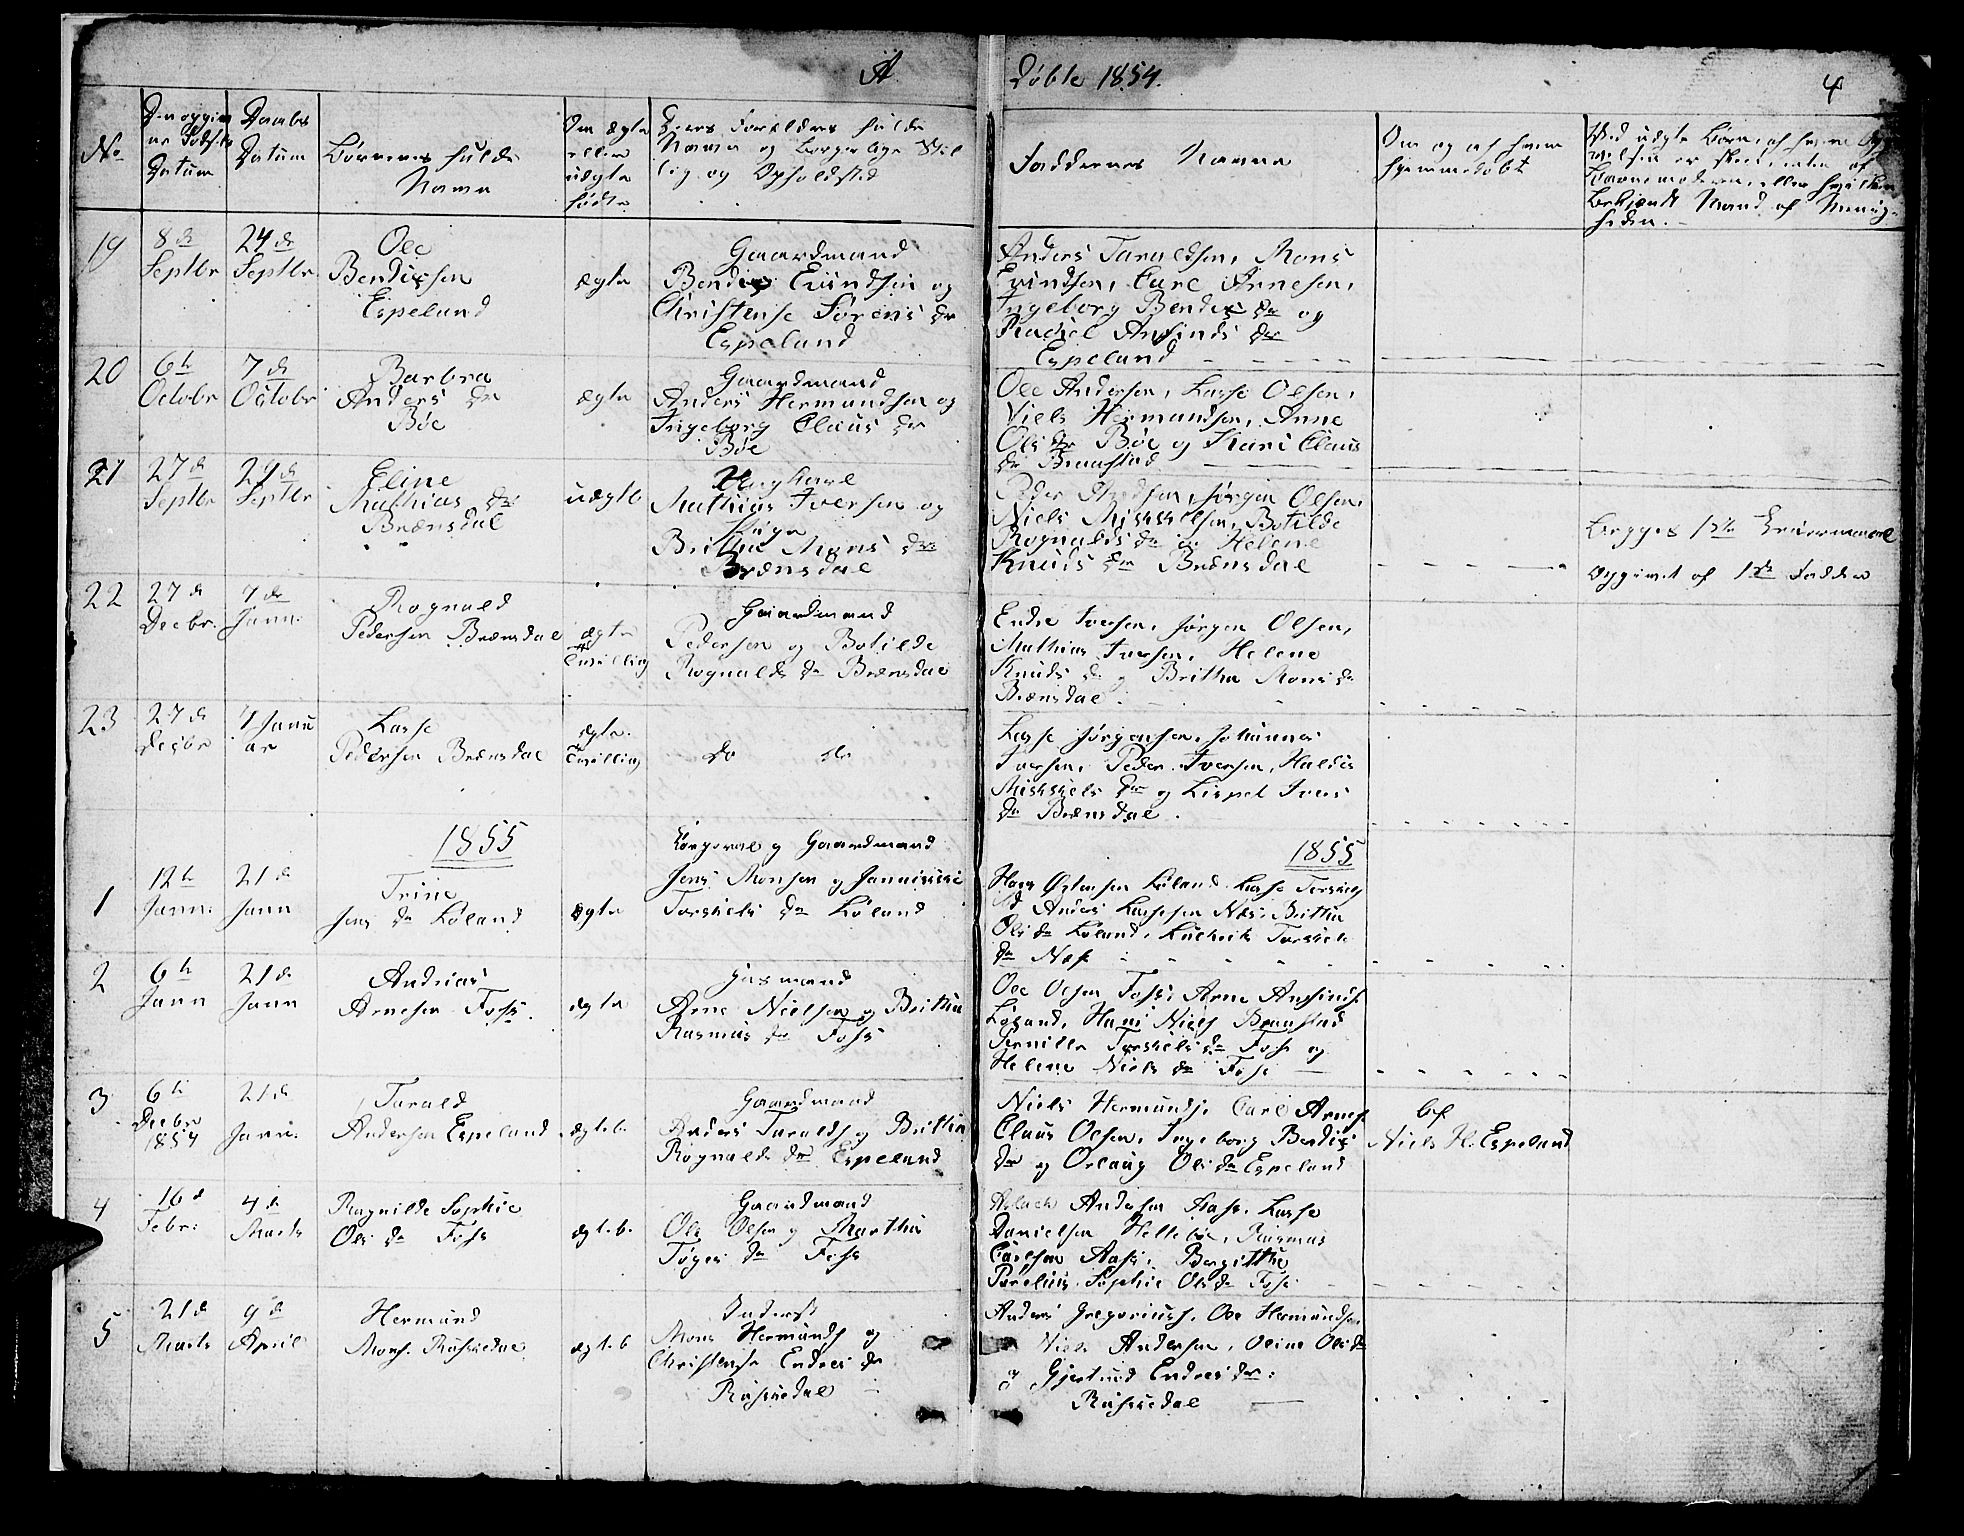 A. Døbte 1854. 4
No
Datum
Daabs
Datum
Børnenes fulde
Navn
Om ægte
eller
uægte
fødte
Deres Forældres fulde
Navne og Borgerlige Stil
lig. og Opholdsted
Faddernes Navne
Om og af hvem
hjemmedøbt
19
8de
Septbr
24de
Septbr
Ole
Bendixsen
Espeland
ægte
Gaardmand
Bendix Eiindsen og
Christense Sørens Dr
Espeland
Anders Taraldsen, Mons
Eiindsen, Carl Arnesen,
Ingeborg Bendix Dr og
Rachel Ansinds Dr
Espeland
20
6te
Octobr
7de
Octobr
Barbra
Anders Dr
Bøe
ægte
Gaardmand
Anders Hermundsen og
Ingeborg Claus Dr
Bøe
Ole Andersen, Lasse Olsen,
Niels Hermundsen, Anne
Ols Dr Bøe og Kari Claus
Dr Brænstad
21
27de
Septbr
29de
Septbr
Eline
Mathias Dr
Brænsdal
uægte
Ungkarl
Mathias Iversen og
Pige
Britha Mons Dr
Brænsdal
Peder Jørgen Olsen,
Niels Mikkelsen, Botilde
Rognalds Dr og Helene
Knuds Dr Brænsdal
Begges 1ste Leiermaal
Opgivet af 1ste Fadder
22
27de
Decbr.
7de
Jann.
Rognald
Pedersen Brænsdal
ægte
Tvilling
Gaardmand
Pedersen og Botilde
Rognalds Dr Brænsdal
Endre Iversen, Jørgen Olsen,
Mathias Iversen, Helene
Knuds Dr og Britha Mons Dr
Brænsdal
23
27de
Decbr
7 Janu
ar
Lasse
Pedersen Brænsdal
ægte
Tvilling
Do do
Lasse Jørgensen, Johannes
Iversen, Peder Iversen, Haldis
Mikkels Dr og Lispet Ivers
Dr Brænsdal.
1855
1855
1
12te
Jann:
21de
Jann
Trine
Jens Dr Løland
ægte
Gaardmand
Jens Monsen og
Torkiels Dr Løland
Hans Østensen Løland. Lasse Torkiels
Anders Lassesen Næs, Britha
Ols Dr Løland, Torkiels
Dr Næs
2
6te
Jann
21de
Jann
Andreas
Arnesen Foss.
ægte
Huusmand
Arne Nielsen og Britha
Rasmus Dr Foss
Ole Olsen Foss, Arne Ansinds
Løland, Hans Niels Brænstad
Pernille Torkiels Dr Foss og
Helene Niels Dr Foss
3
6te
Decbr
1854
21de
Jann.
Tarald
Andersen Espeland
ægteb.
Gaardmand
Anders Taralds og Britha
Rognalds Dr Espeland
Niels Hermunds, Carl Arnes
Claus Olsen, Ingeborg Bendix
Dr og Orlaug Ols Dr Espeland
af
Niels H. Espeland
4
16d
Febr:
4de
Marts
Ragnilde Sophie
Ols Dr Foss
ægteb.
Gaardmand
Ole Olsen og Martha
Tøger Dr Foss
Aslack Andersen Aase, Lasse
Danielsen Hellebø, Rasmus
Carlsen Aase, Bergitthe
Sophie Ols Dr Foss
5
21de
Marts
9de
April
Hermund
Mons. Russedal
ægteb
Inderst
Mons Hermunds og
Christense Endres Dr
Russedal
Anders Gregoriuss, Ole Hermundsen
Niels Andersen, Oline Ols Dr
og Gjertrud Endres Dr:
Russedal